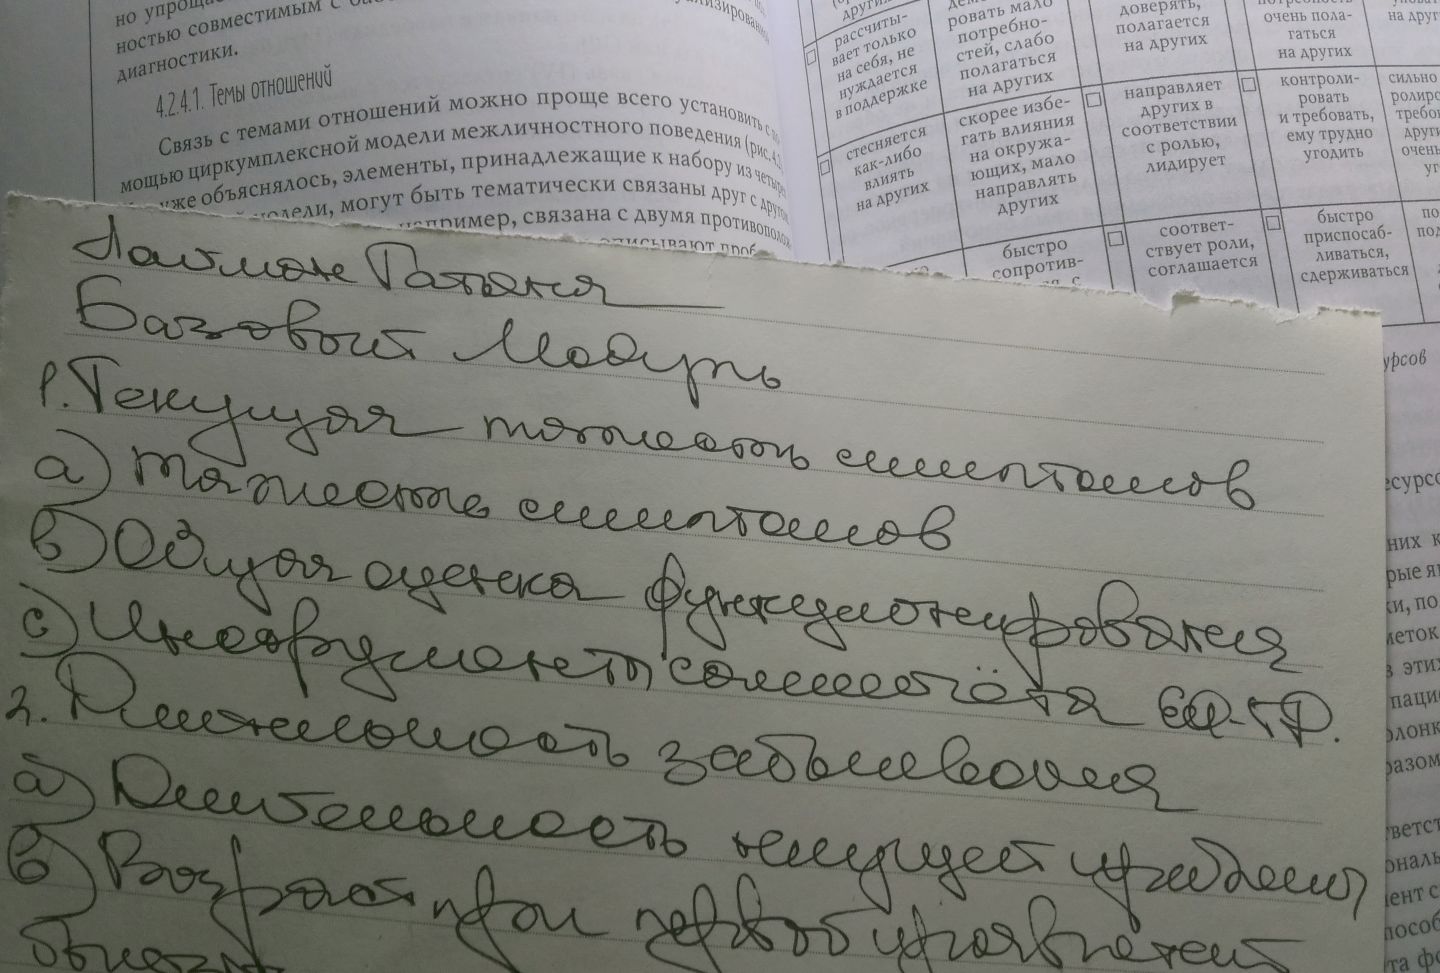 но упрощ
ностью совместимым с
диагностики.
4.2.4.1. Темы отношений
Связь с темами отношений можно проще всего установить с по-
мощью циркумплексной модели межличностного поведения (рис. 4.
уже объяснялось, элементы, принадлежащие к набору из четырех
модели, могут быть тематически связаны друг с другом
например, связана с двумя противополож
описывают
других
рассчиты-
вает только
на себя, не
нуждается
в поддержке
ровать мало
потребно-
стей, слабо
полагаться
на других
доверять,
полагается
на других
потребность
очень пола-
гаться
на других
на друг
стесняется
как-либо
влиять
на других
скорее избе-
гать влияния
на окружа-
ющих, мало
направлять
других
направляет
других в
соответствии
с ролью,
лидирует
контроли-
ровать
и требовать,
ему трудно
угодить
сильно
быстро
сопротив-
соответ-
ствует роли,
соглашается
быстро
приспосаб-
ливаться,
сдерживаться
Татьяна
Базовый Модуль
1. Текущая тяжесть симптомов
а) тяжесть симптомов
в) Общая оценка функционирования
с) Инструменты самоотчёта EQ-5D.
2. Длительность заболевания
а) Длительность текущей проблемы
в) Возраст при первой проявлении